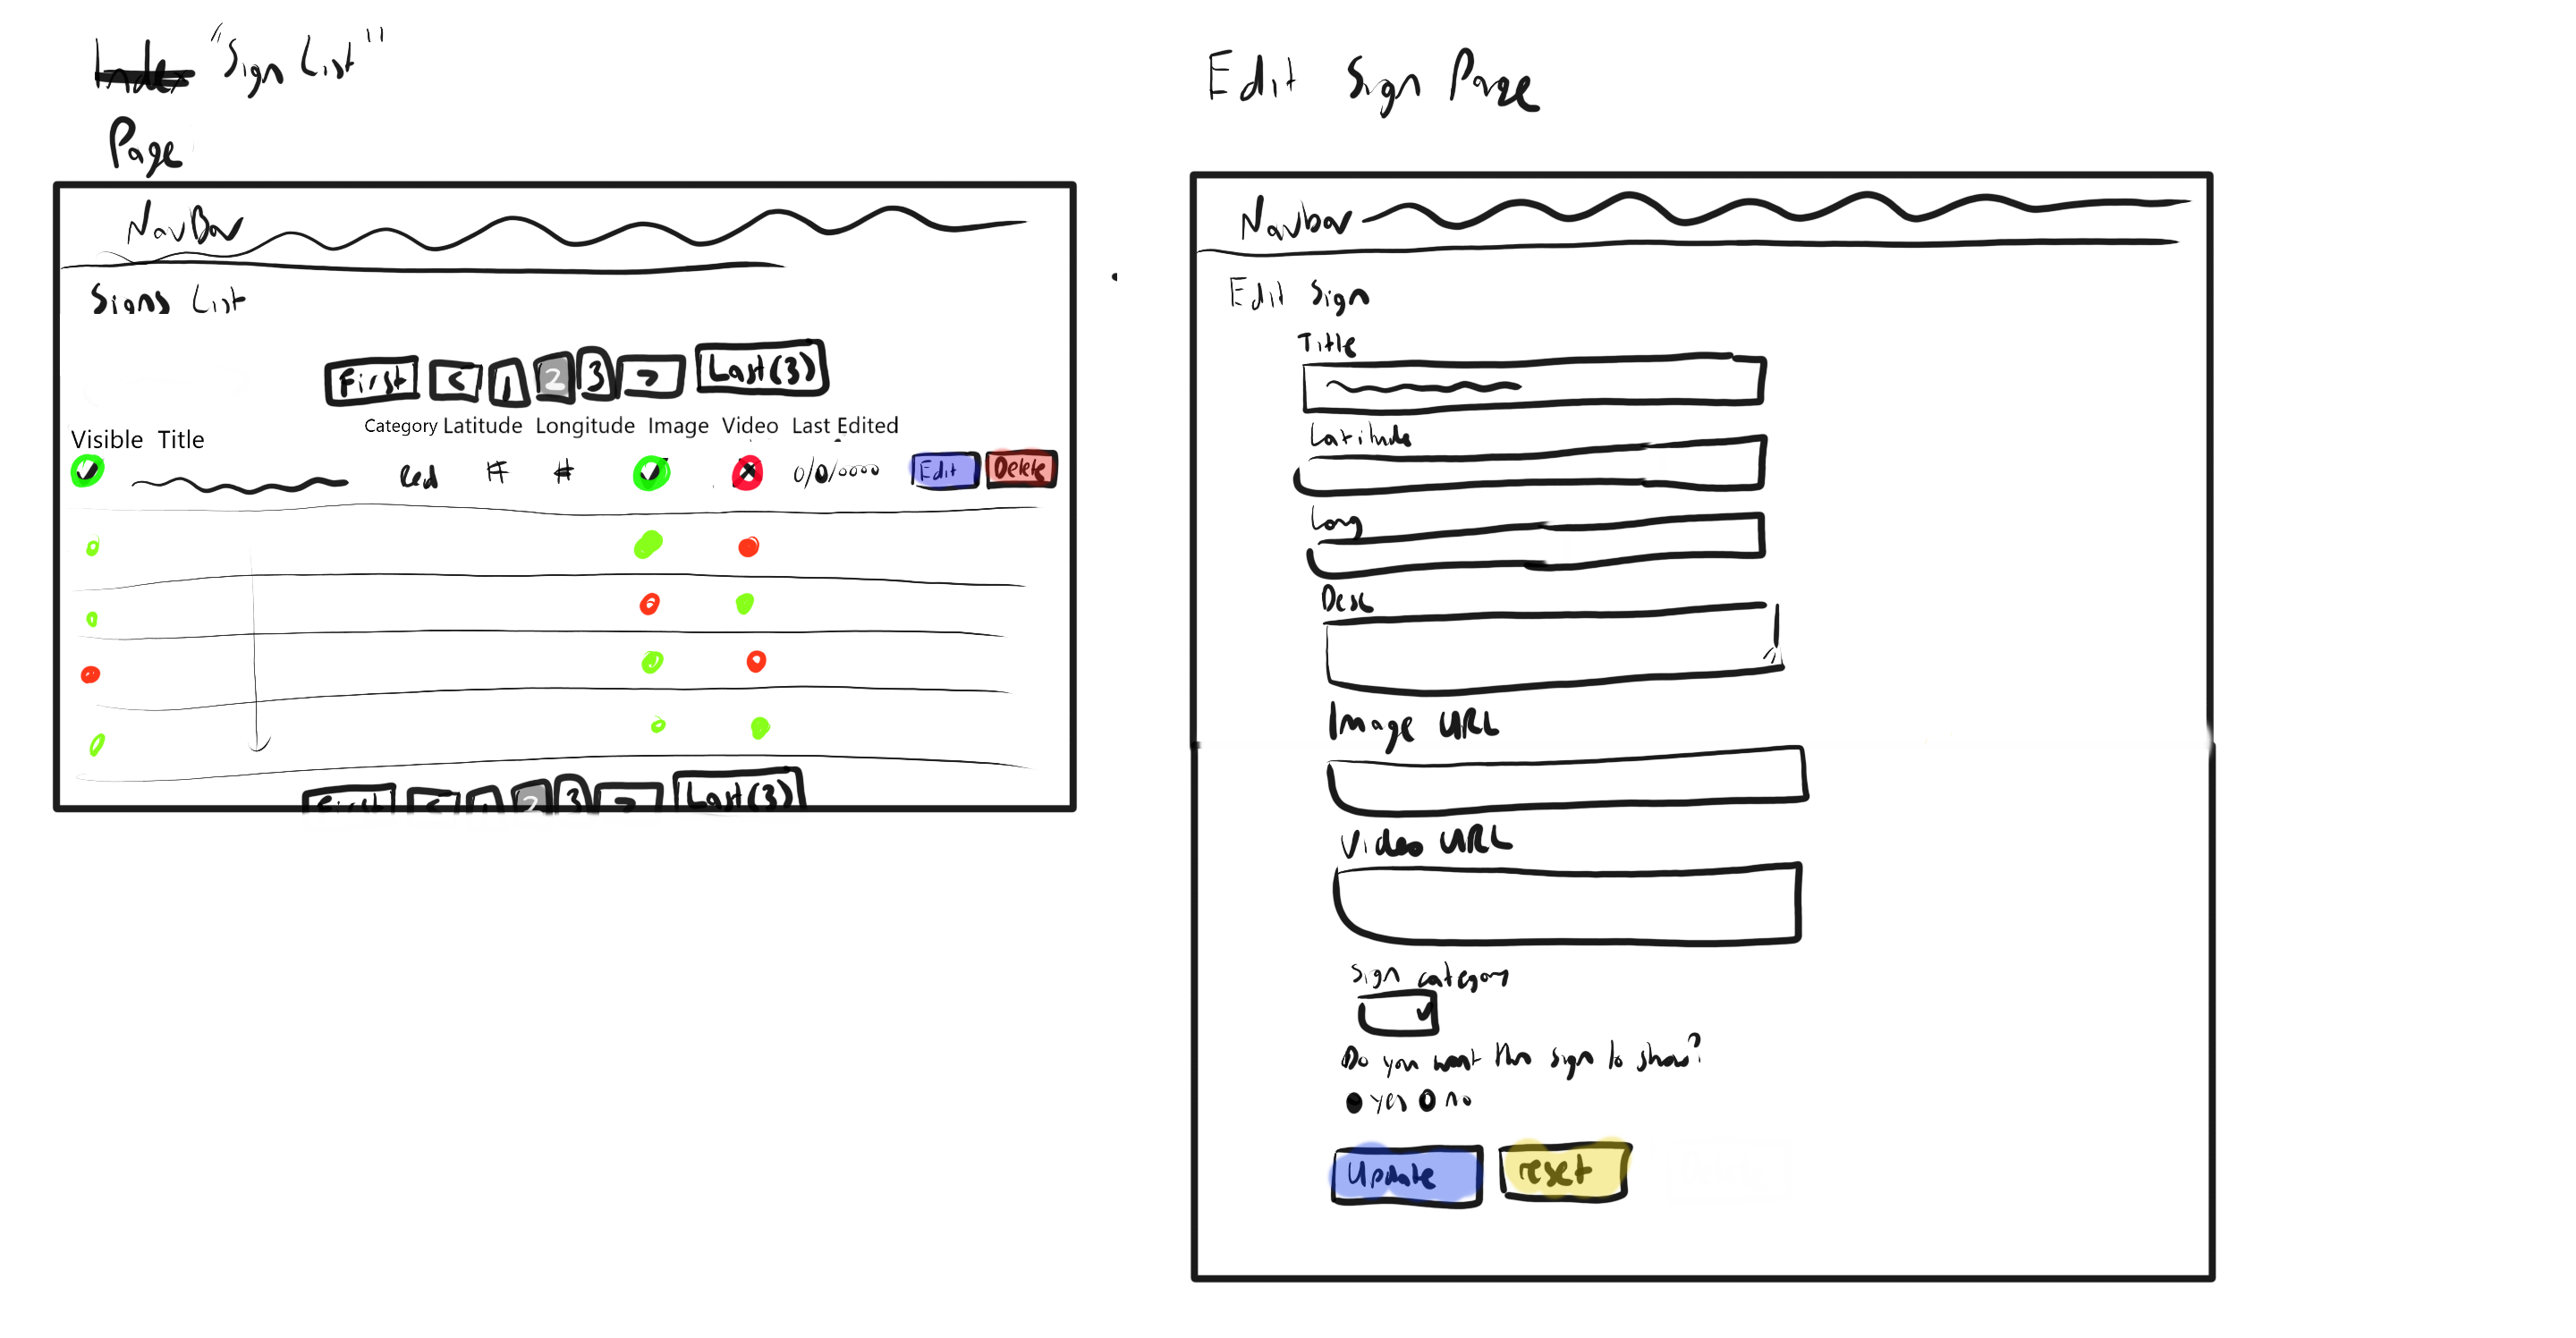 Index "Sign List"
Page
NavBar
Signs List
First < 1 2 3 > Last(3)
Visible Title Category Latitude Longitude Image Video Last Edited
Red # # 0/0/0000 Edit Delete
First < 1 2 3 > Last(3)
Edit Sign Page
Navbar
Edit Sign
Title
Latitude
Long
Desc
Image URL
Video URL
Sign category
Do you want this sign to show?
yes no
Update reset